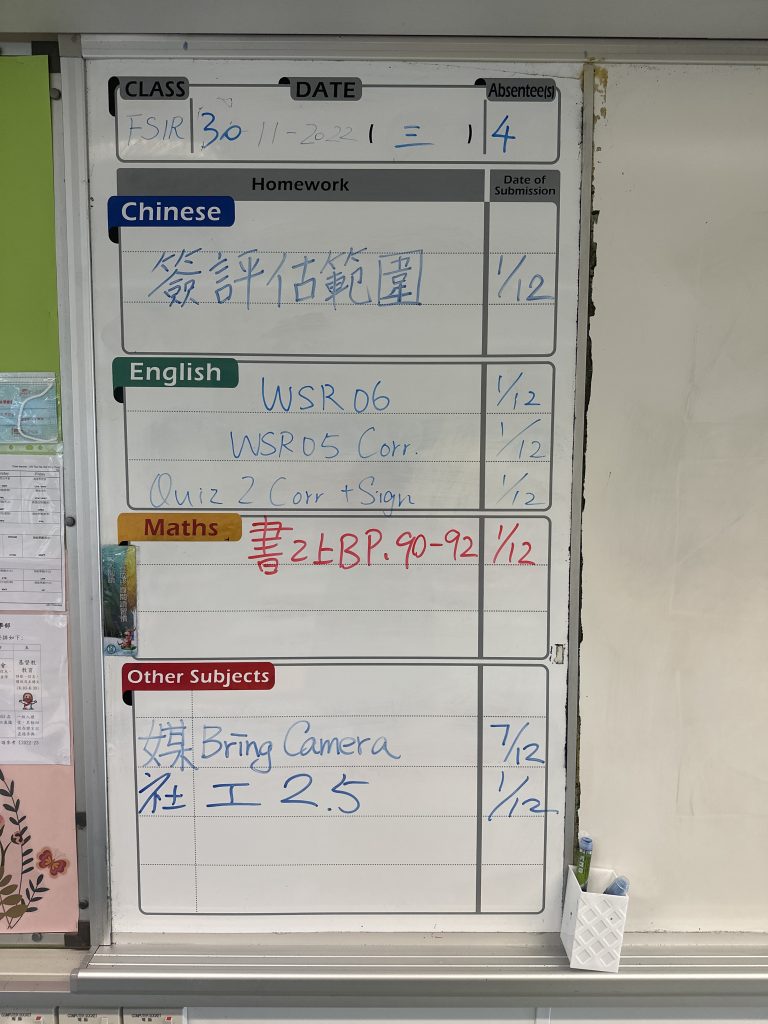 CLASS DATE Absentee(s)
FSIR 30-11-2022 (三) 4
Homework Date of Submission
Chinese
簽評估範圍 1/12
English
WSR 06 1/12
WSR05 Corr. 1/12
Quiz 2 Corr + Sign 1/12
Maths
書2上B P.90-92 1/12
Other Subjects
媒 Bring Camera 7/12
社 工 2.5 1/12
基督教
教育
COMPUTER SOCKET
COMPUTER SOCKET
COMPUTER SOCKET